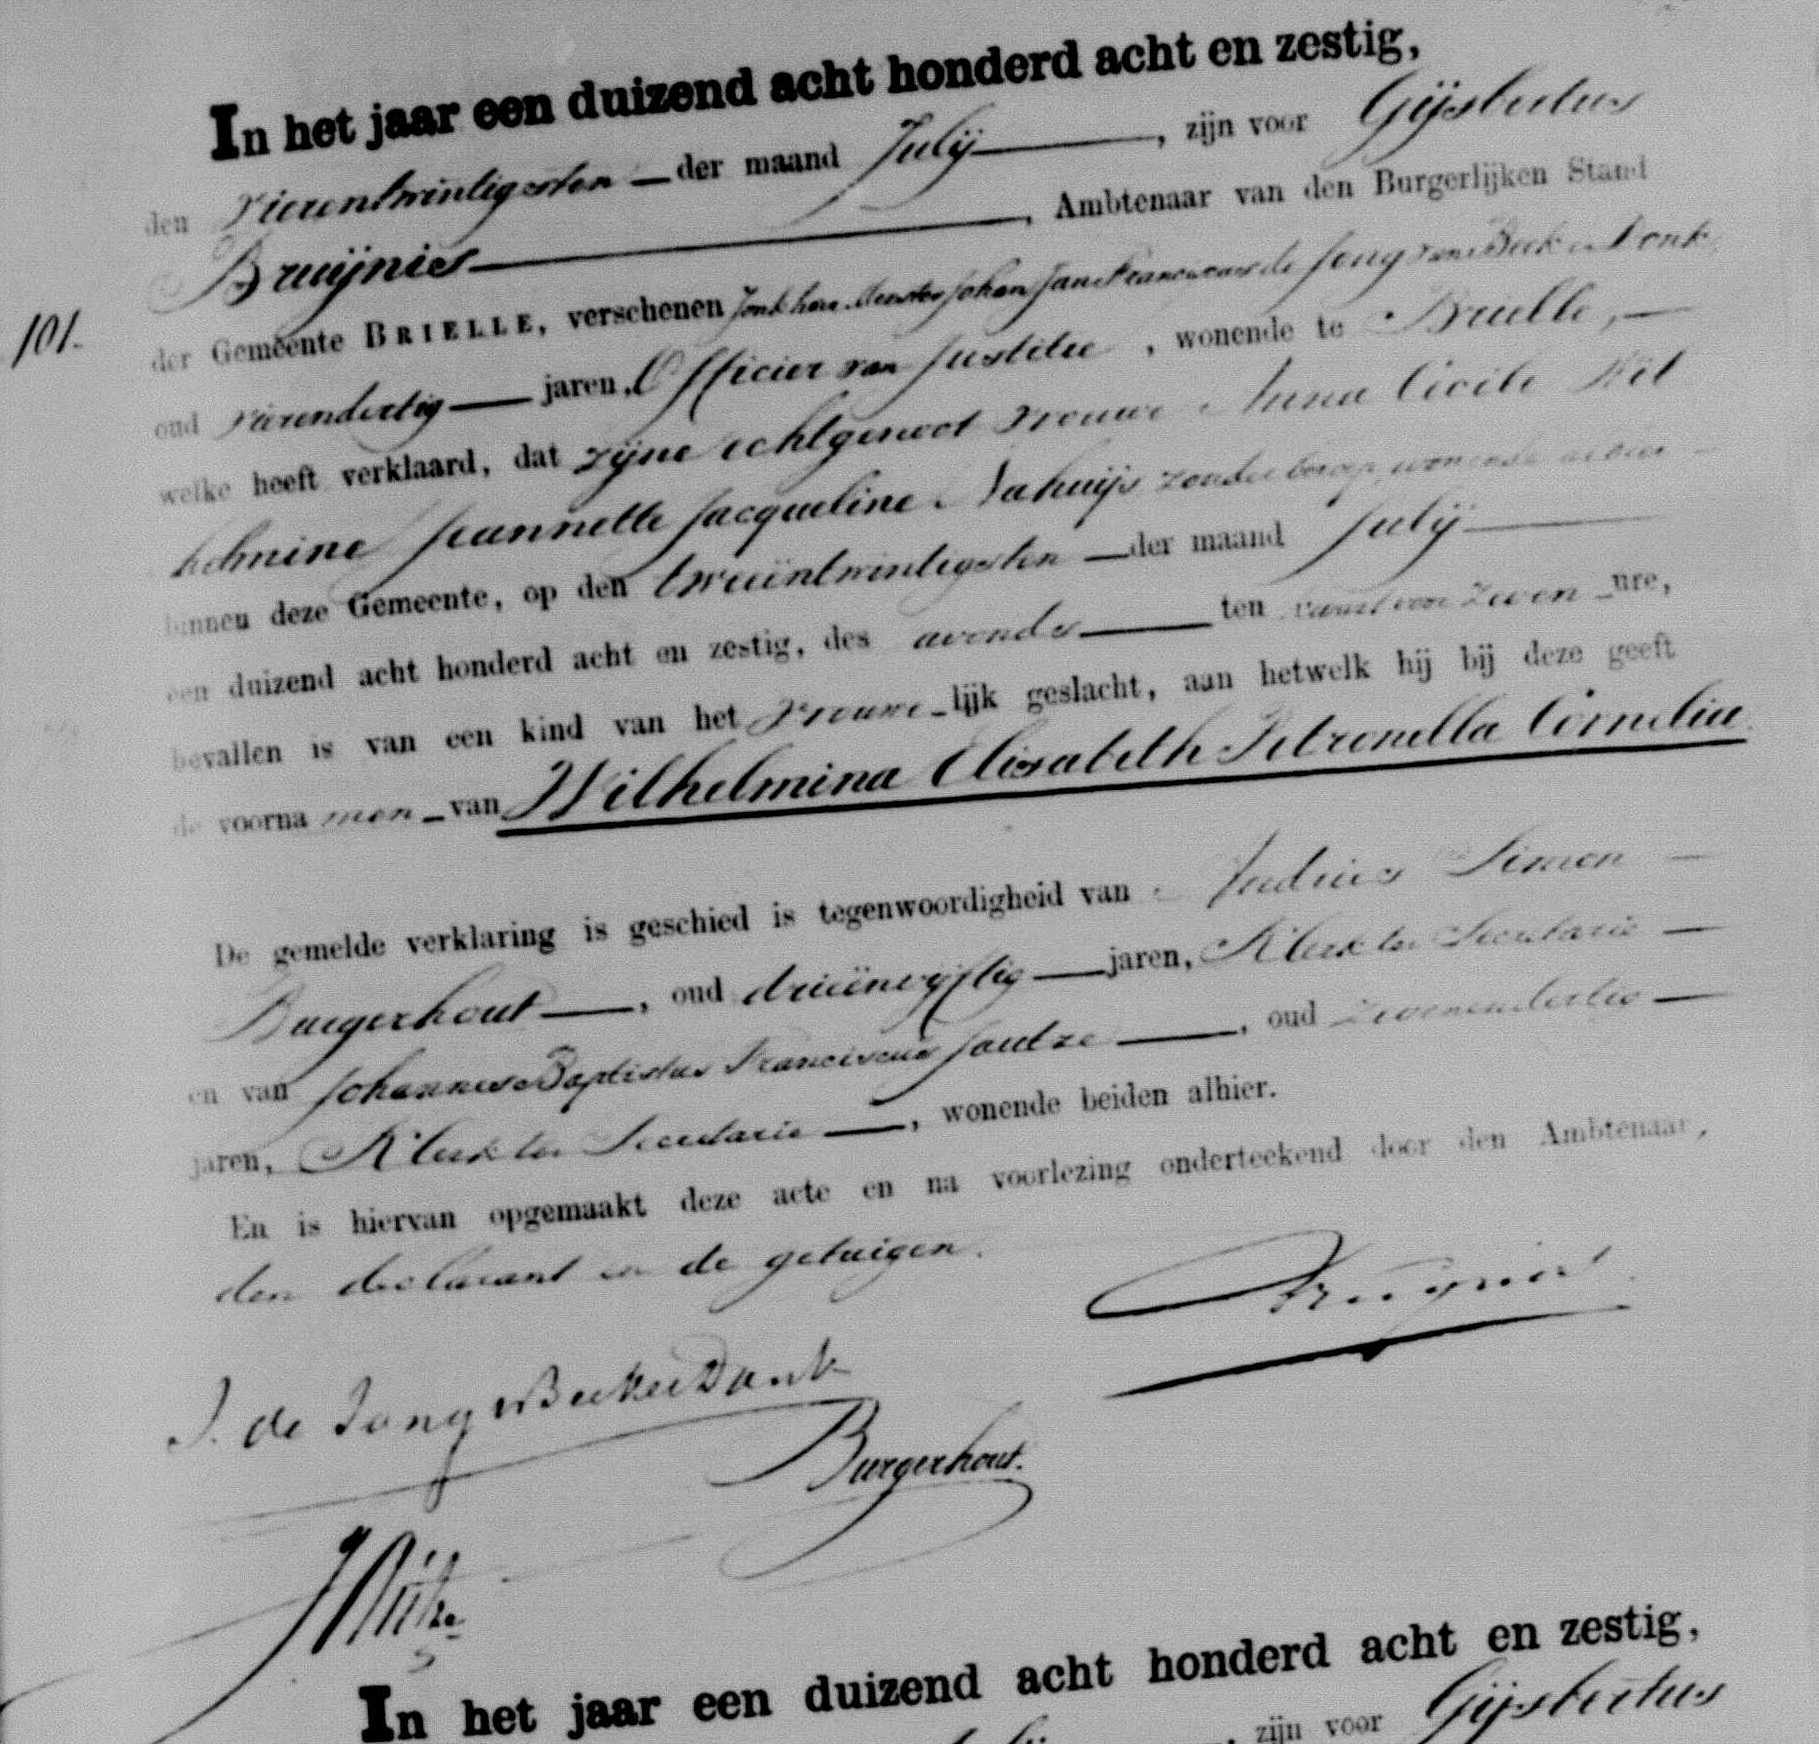 In het jaar een duizend acht honderd acht en zestig,
den vierentwintigsten der maand July, zijn voor Gijsbertus
Bruijnis, Ambtenaar van den Burgerlijken Stand
101.
der Gemeente BRIELLE, verschenen Jonkheer Meester Johan Jan Franciscus de Jong van Beek en Donk,
oud vierendertig jaren, Officier van Justitie, wonende te Brielle,
welke heeft verklaard, dat zijne echtgenoot Vrouwe Anna Cecile Wil
helmine Jeannette Jacqueline Nahuijs zonder beroep, wonende alhier
binnen deze Gemeente, op den tweeëntwintigsten der maand July
een duizend acht honderd acht en zestig, des avonds ten kwart voor zeven ure,
bevallen is van een kind van het vrouwelijk geslacht, aan hetwelk hij bij deze geeft
de voornamen van Wilhelmina Elisabeth Petronella Cornelia
De gemelde verklaring is geschied is tegenwoordigheid van Simon
Burgerhout, oud drieënvijftig jaren, Klerk ter Secretarie
en van Johannes Baptistus Franciscus, oud zevenendertig
jaren, Klerk ter Secretarie, wonende beiden alhier.
En is hiervan opgemaakt deze acte en na voorlezing onderteekend door den Ambtenaar,
den declarant en de getuigen.
Bruijnis
J. de Jong v Beek en Donk
Burgerhout.
In het jaar een duizend acht honderd acht en zestig,
zijn voor Gijsbertus